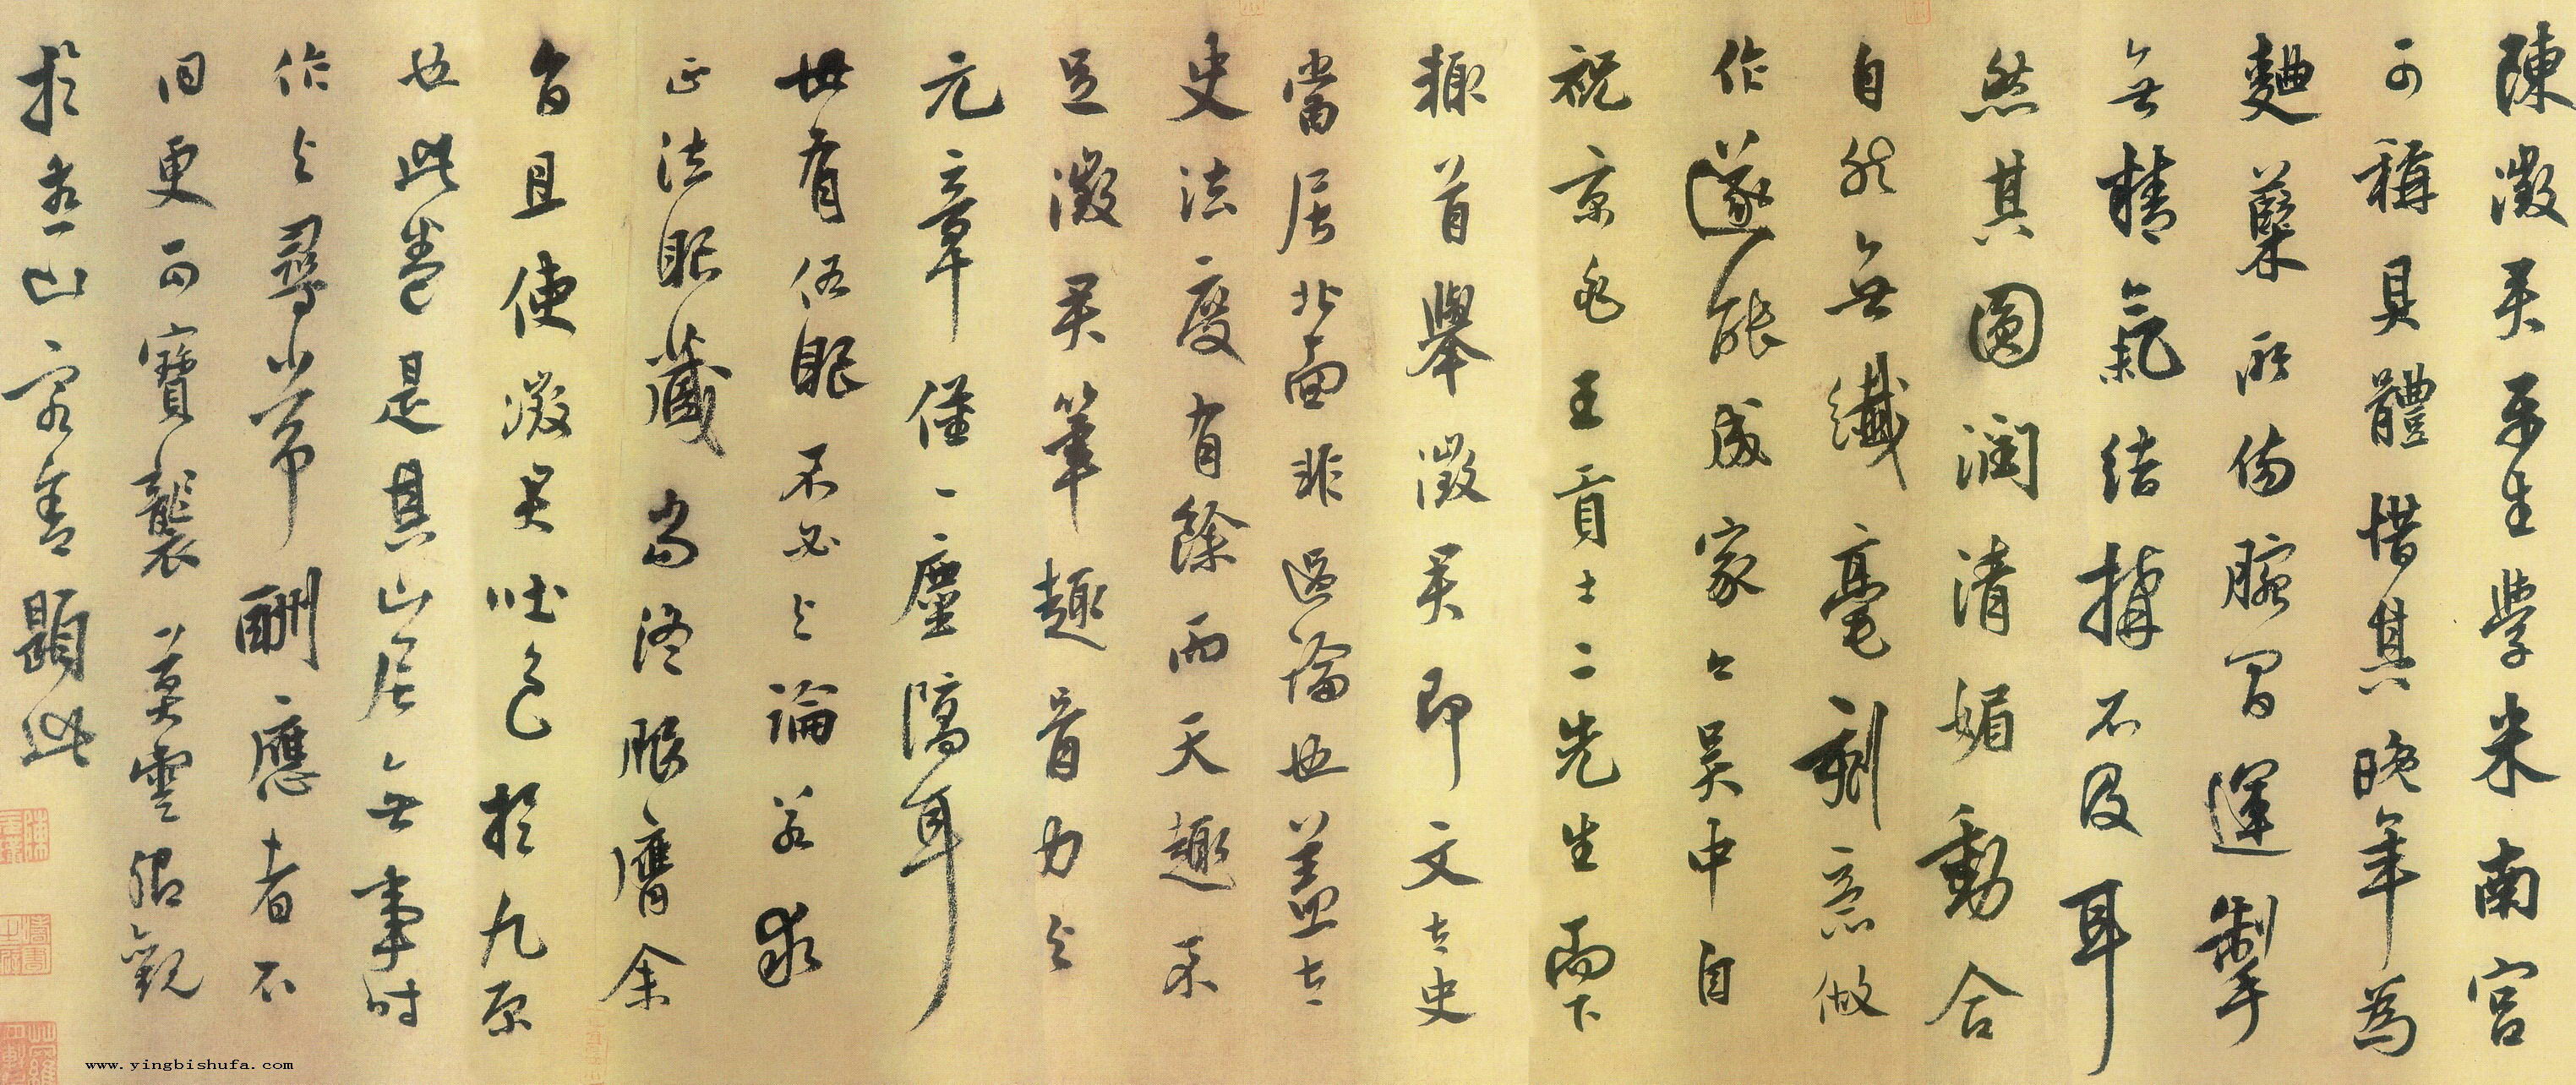 陳激靈平生學米南宮
可稱具體惜其晚年為
麯蘖所傷腕間運掣
無精氣結搆不及耳
然其圓潤清媚動合
自然無纖毫刻意做
作遂能成家々吳中自
祝京兆王貢士二先生而下
推首舉激靈即文太史
當居北面非過論也蓋太
史法度有餘而天趣不
足激靈筆趣骨力與
元章僅一塵隔耳
世有俗眼不必與論若求
正法眼藏當終服膺余
言且使激靈吐色於九原
也此卷是其山居無事時
作與尋常酬應者不
同更可寶襲莫雲卿觀
於秀山客舍題此
www.yingbishufa.com